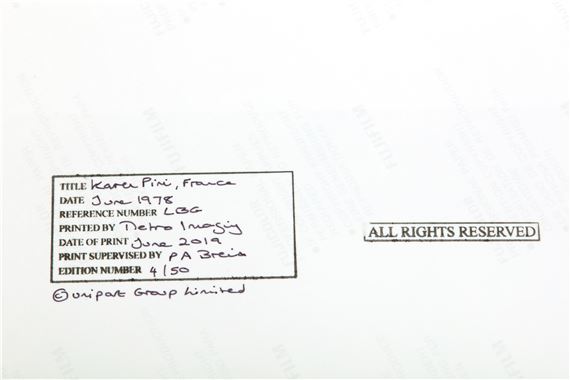 TITLE Karen Pini, France
DATE June 1978
REFERENCE NUMBER LBG
PRINTED BY Metro Imaging
DATE OF PRINT June 2019
PRINT SUPERVISED BY P A Breis
EDITION NUMBER 4/50
© Unipart Group Limited
ALL RIGHTS RESERVED